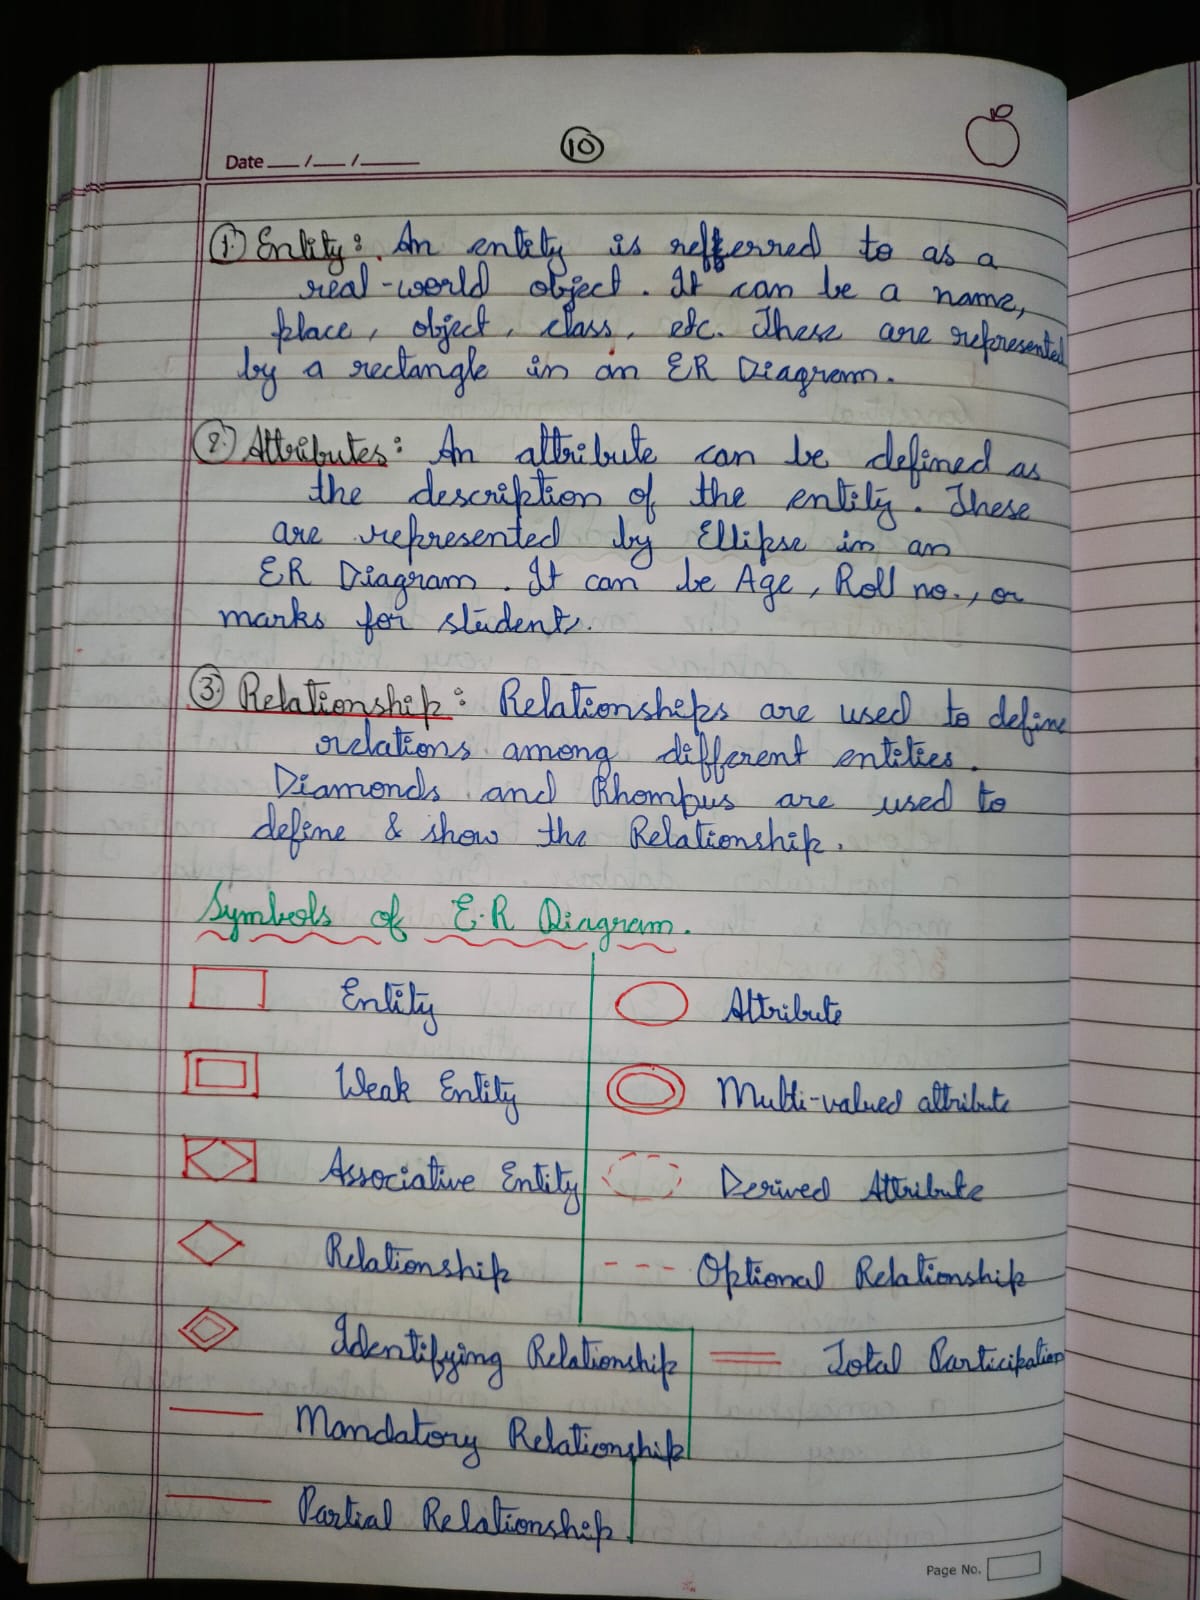 Date __/__/____
10
1. Entity: An entity is refferred to as a
real-world object. It can be a name,
place, object, class, etc. These are represented
by a rectangle in an ER Diagram.
2. Attributes: An attribute can be defined as
the description of the entity. These
are represented by Ellipse in an
ER Diagram. It can be Age, Roll no., or
marks for students.
3. Relationship: Relationships are used to define
relations among different entities.
Diamonds and Rhombus are used to
define & show the Relationship.
Symbols of E.R Diagram.
Entity
Attribute
Weak Entity
Multi-valued attribute
Associative Entity
Derived Attribute
Relationship
Optional Relationship
Identifying Relationship
Total Participation
Mandatory Relationship
Partial Relationship.
Page No.